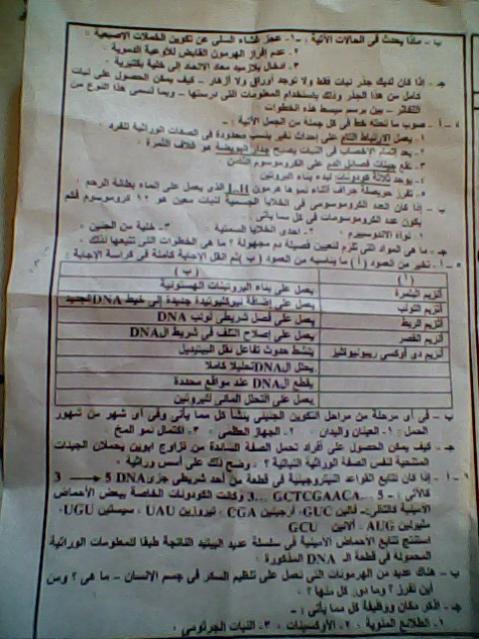 ب - ماذا يحدث فى الحالات الآتية : ١- عجز غشاء السلى عن تكوين الخملات الإصبعية ؟
٢- عدم إفراز الهرمون القابض للأوعية الدموية
٣- ادخال بلازميد معاد الاتحاد إلى خلية بكتيرية ؟
جـ - إذا كان لديك جذر نبات فقط ولا توجد أوراق ولا أزهار - كيف يمكن الحصول على نبات
كامل من هذا الجذر وذلك باستخدام المعلومات التى درستها - وبما تسمى هذا النوع من
التكاثر - بين برسم مبسط هذه الخطوات
٤ - أ - صوب ما تحته خط فى كل جملة من الجمل الآتية :-
١- يعمل الارتباط التام على إحداث تغير بنسب محدودة فى الصفات الوراثية للفرد
٢- بعد إتمام الإخصاب فى النبات يصبح جدار البويضة هو غلاف الثمرة
٣- تقع جينات فصائل الدم على الكروموسوم الثامن
٤- يوجد ثلاثة كودونات لبدء بناء البروتين
٥- تفرز حويصلة جراف أثناء نموها هرمون الـ L.H الذى يعمل على انماء بطانة الرحم
ب - إذا كان العدد الكروموسومى فى الخلايا الجسمية لنبات معين هو ١٢ كروموسوم فكم
يكون عدد الكروموسومات فى كل مما يأتى
١- نواة الاندوسبيرم ٢- احدى الخلايا السمتية ٣- خلية من الجنين
جـ - ما هى المواد التى تلزم لتعيين فصيلة دم مجهولة ؟ ما هى الخطوات التى تتبعها لذلك
٥ - أ - تخير من العمود ( أ ) ما يناسبه من العمود ( ب ) ثم انقل الإجابة كاملة فى كراسة الإجابة :
( أ ) ( ب )
أنزيم البلمرة يعمل على بناء البروتينات الهستونية
أنزيم اللولب يعمل على إضافة نيوكليوتيدة جديدة إلى خيط DNA الجديد
أنزيم الربط يعمل على فصل شريطى لولب DNA
أنزيم القصر يعمل على إصلاح التلف فى شريط الـ DNA
أنزيم دى أوكسى ريبونيوكليز ينشط حدوث تفاعل نقل الببتيديل
يحلل الـ DNA تحليلا كاملا
يقطع الـ DNA عند مواقع محددة
يعمل على التحلل المائى للبروتين
ب - فى أى مرحلة من مراحل التكوين الجنينى ينشأ كل مما يأتى وفى أى شهر من شهور
الحمل : ١- العينان واليدان ٢- الجهاز العظمى ٣- اكتمال نمو المخ
جـ - كيف يمكن الحصول على أفراد تحمل الصفة السائدة من تزاوج ابوين يحملان الجينات
المتنحية لنفس الصفة الوراثية النباتية ؟ وضح ذلك على أسس وراثية
٦ - أ - إذا كان تتابع القواعد النيتروجينية فى قطعة من أحد شريطى جزئ DNA 5 ← 3
كالآتى :- 5 ... GCTCGAACA ... 3 وكانت الكودونات الخاصة ببعض الأحماض
الأمينية كالتالى:- فالين GUC - أرجنين CGA - تيروزين UAU - سيستين UGU -
مثيونين AUG - آلانين GCU
استنتج تتابع الأحماض الأمينية فى سلسلة عديد الببتيد الناتجة طبقا للمعلومات الوراثية
المحمولة فى قطعة الـ DNA المذكورة
ب - هناك عديد من الهرمونات التى تعمل على تنظيم السكر فى جسم الانسان - ما هى ؟ ومن
أين تفرز ؟ وما دور كل منها ؟
جـ - اذكر مكان ووظيفة كل مما يأتى :-
١- الطلائع المنوية ٢- الأوكسينات ٣- النبات الجرثومى